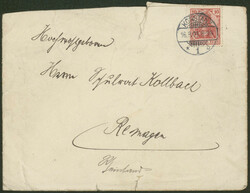 Hochwohlgeboren
Herrn Schulrat Kollbach
Remagen
Rheinland